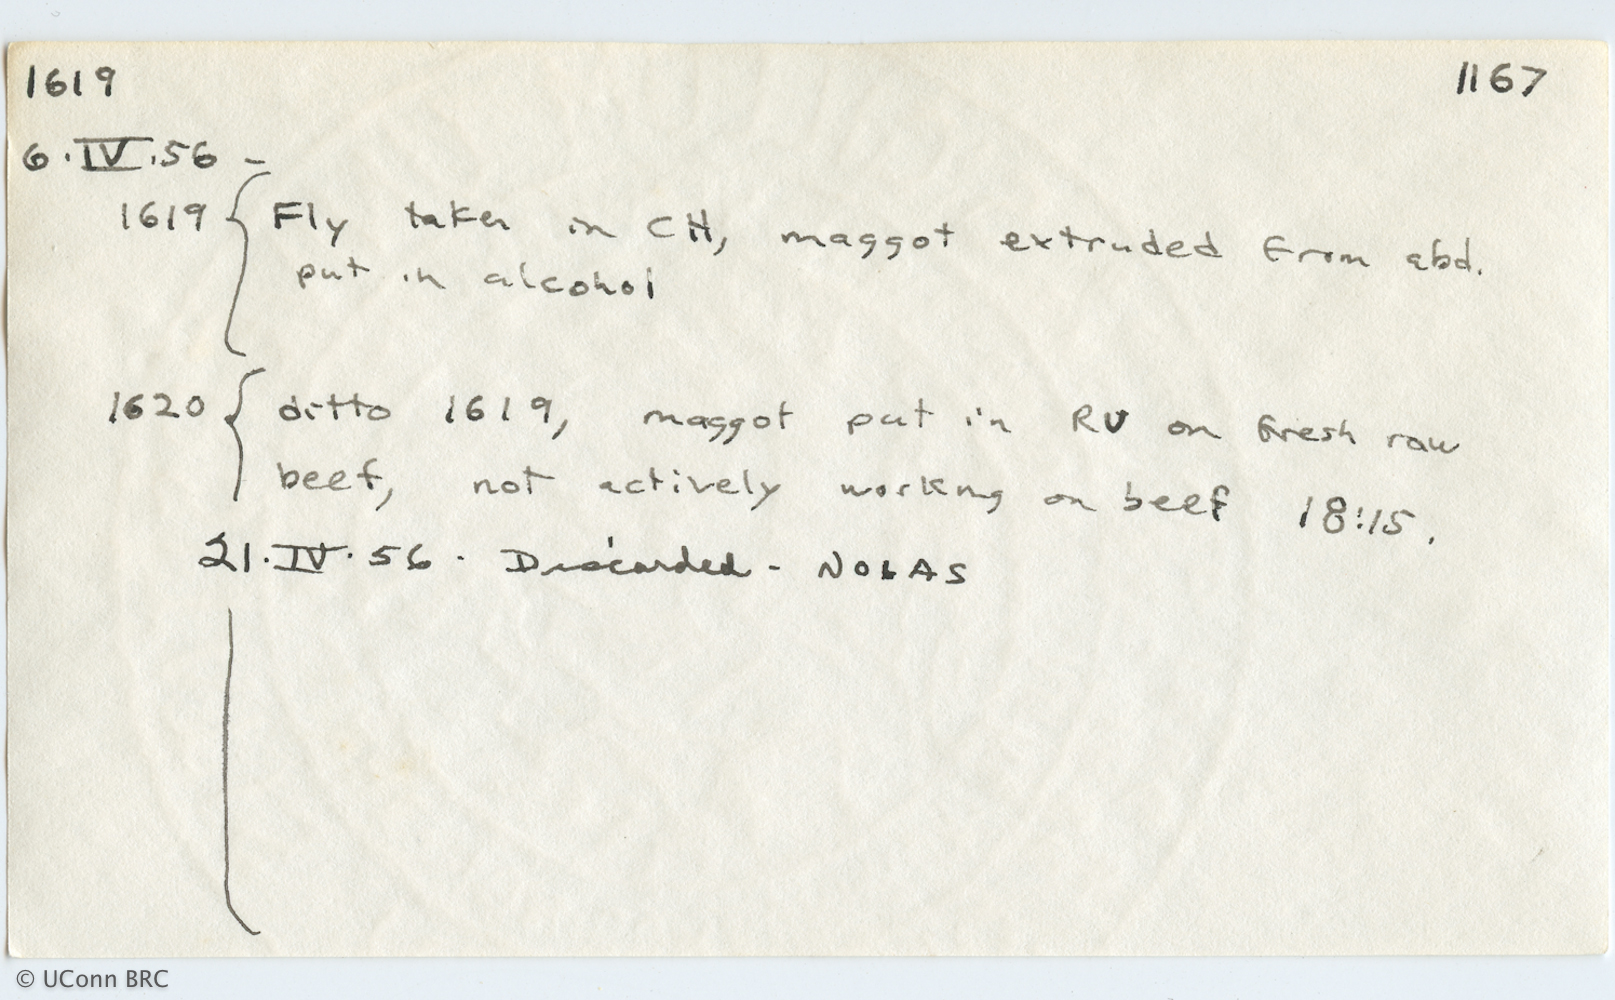 1619 1167
6.IV.56 -
1619 { Fly taken in CH, maggot extruded from abd.
put in alcohol
1620 { ditto 1619, maggot put in RV on fresh raw
beef, not actively working on beef 18:15.
21.IV.56. Discarded - NOLAS
© UConn BRC